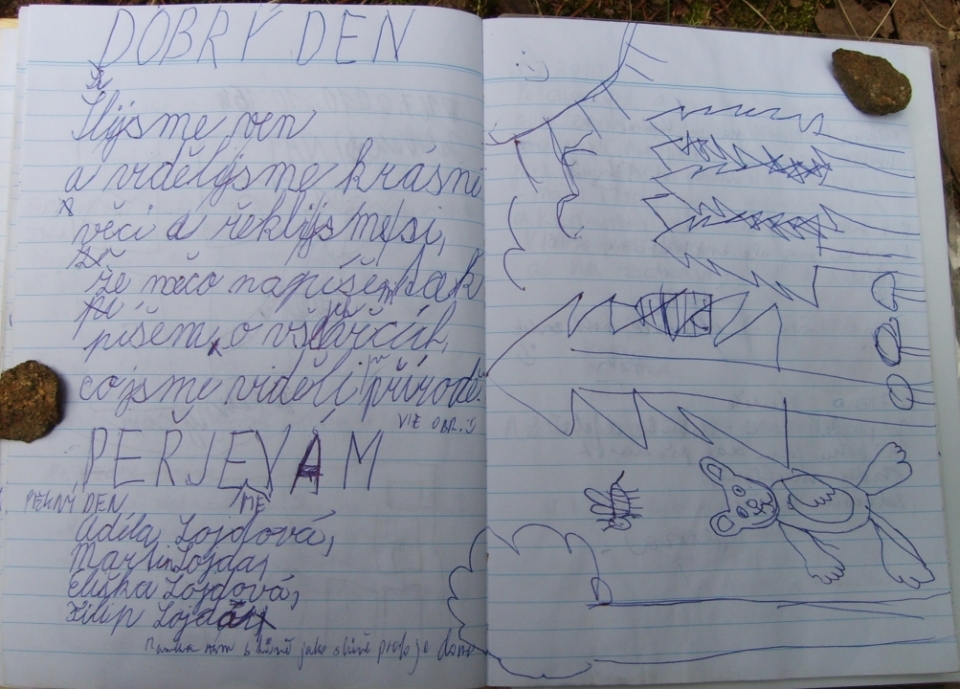 DOBRÝ DEN
Šlýsme ven
a vidělysme krásné
věci a řeklijsme si,
že něco napíšem tak
píšem, o všech věcích,
co jsme viděli v přírodě.
VIZ OBR. :)
PEŘJEVÁM
PĚKNÝ DEN ME
Adéla Lojdová,
Martin Lojda,
Eliška Lojdová,
Filip Lojda
jako proto je doma
:)